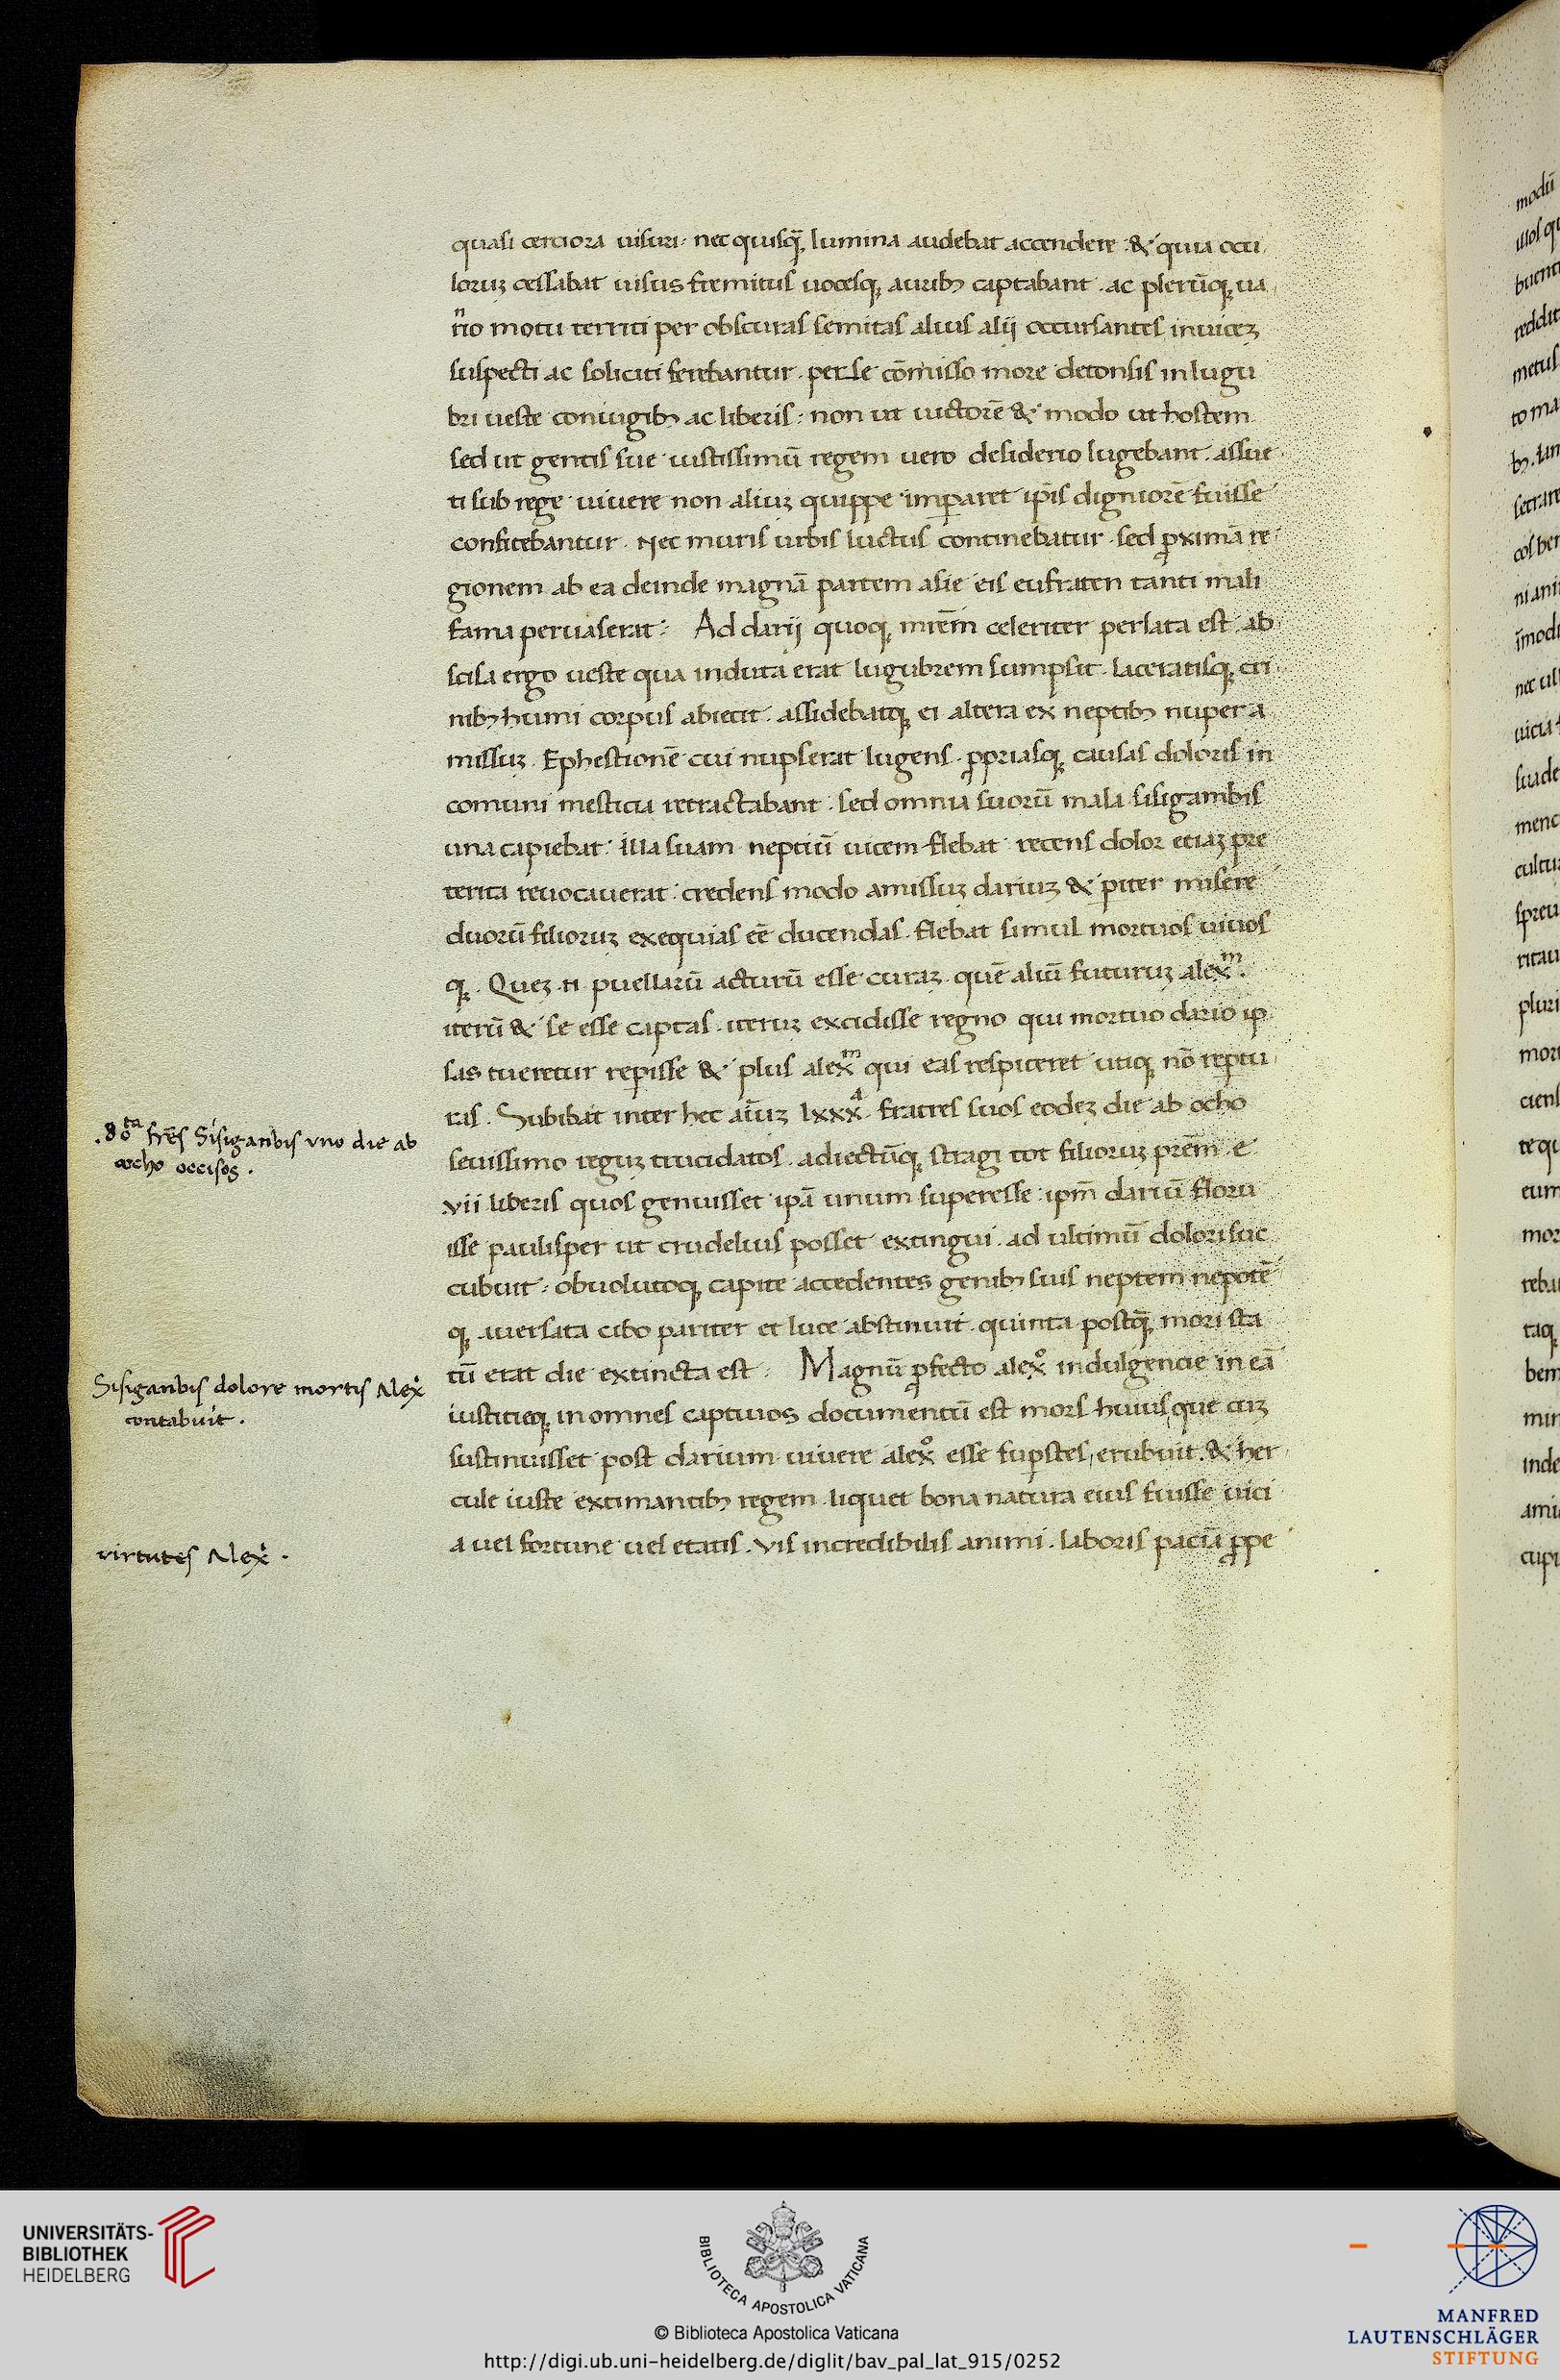 quasi cerciora uisuri · nec quisq̄ lumina audebat accendere · & quia ocu
loruꝫ cessabat uisus fremitus uocesqꝫ auribꝫ captabant · ac plerūqꝫ ua
no motu territi per obscuras semitas alius alij occursantes inuiceꝫ
suspecti ac soliciti ferebantur · perse cōmisso more detonsis in lugu
bri ueste coniugibꝫ ac liberis : non ut uictorē & modo ut hostem
sed ut gentis sue iustissimū regem uero desiderio lugebant · assue
ti sub rege uiuere non aliuꝫ quippe imꝑaret ip̄is digniorē fuisse
confitebantur · Nec muris urbis luctus continebatur · sed ꝓximā re
gionem ab ea deinde magnā partem asie cis eufraten tanti mali
fama peruaserat : Ad darij quoqꝫ mr̄em celeriter perlata est · ab
scisa ergo ueste qua induta erat lugubrem sumpsit · laceratisqꝫ cri
nibꝫ humi corpus abiecit · assidebatqꝫ ei altera ex neptibꝫ nuper a
missuꝫ · Ephestionē cui nupserat lugens · ꝓpriasqꝫ causas doloris in
comuni mesticia retractabant · sed omnia suorū mala sisigambis
una capiebat : illa suam neptiū uicem flebat · recens dolor etiaꝫ pre
terita reuocauerat · credens modo amissuꝫ dariuꝫ & ꝑiter misere
duorū filioruꝫ exequias eē ducendas · flebat simul mortuos uiuos
qꝫ · Queꝫ n puellarū acturū esse curaꝫ · quē aliū futuruꝫ alexͫ ·
iterū & se esse captas · iteruꝫ excidisse regno qui mortuo dario ip
sas tueretur reꝑisse & plus alexͫ qui eas respiceret utiqꝫ nō reꝑtu
ras · Subibat inter hec aīuꝫ lxxx · fratres suos eodeꝫ die ab ocho
seuissimo reguꝫ trucidatos · adiectūqꝫ stragi tot filioruꝫ pr̄em · e
vii liberis quos genuisset ip̄a unum superesse · ipm̄ dariū floru
isse paulisper ut crudelius posset extingui · ad ultimū dolori suc
cubuit : obuolutoqꝫ capite accedentes genibꝫ suis neptem nepotē
qꝫ auersata cibo pariter et luce abstinuit · quinta postq̄ mori sta
tū erat die extincta est : Magnū ꝓfecto alexͦ indulgencie in eā
iusticieqꝫ in omnes captiuos documentū est mors huius que cuꝫ
sustinuisset post darium uiuere alexͦ esse suꝑstes erubuit · & her
cule iuste extimantibꝫ regem liquet bona natura eius fuisse uici
a uel fortune uel etatis · vis incredibilis animi · laboris paciā ꝓpe
· 80ta fr̄es Sisiganbis vno die ab
ocho occisos ·
Sisiganbis dolore mortis Alex̓
contabuit ·
virtutes Alex̓ ·
modū
illos qu
reddit
metus
to ma
nec ul
suade
pluri
mor
te qu
eum
mor
reba
taqꝫ
bem
min
inde
ami
cupi
UNIVERSITÄTS-
BIBLIOTHEK
HEIDELBERG
BIBLIOTECA APOSTOLICA VATICANA
© Biblioteca Apostolica Vaticana
http://digi.ub.uni-heidelberg.de/diglit/bav_pal_lat_915/0252
MANFRED
LAUTENSCHLÄGER
STIFTUNG